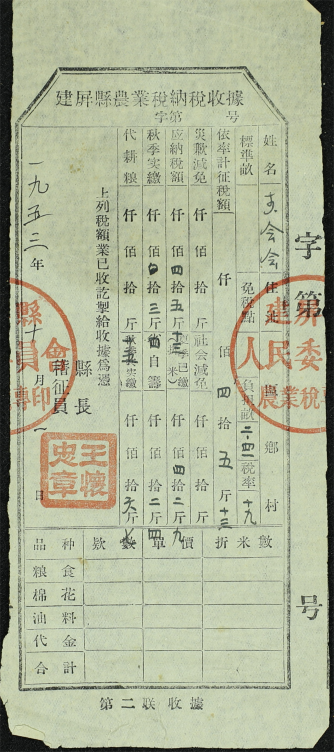 建屏縣農業稅納稅收據
字第　號
姓名
住址
鄉　村
標準畝
免稅點
負担畝 2.42 稅率 十九
依率計征稅額 仟 佰 四 拾 五 斤 十三
災歉減免 仟 佰 拾 斤 社会減免 仟 佰 拾 斤
应納稅額 仟 佰 四 拾 五 斤 十三 仟 佰 四 拾 二 斤 九
秋季实繳 仟 佰 拾 三 斤 省 自籌 仟 佰 拾 二 斤 四
代耕粮 仟 佰 拾 斤 仟 佰 拾 斤
上列稅額業已收訖掣給收據為憑
縣長
稽征員
王懷忠章
一九五三年 十 月 一 日
品种 欵數 單價 折米數
粮食
棉花
油料
代金
合計
第二联收據
字第
号
縣
員會
專印
建屏
人民委
農業稅